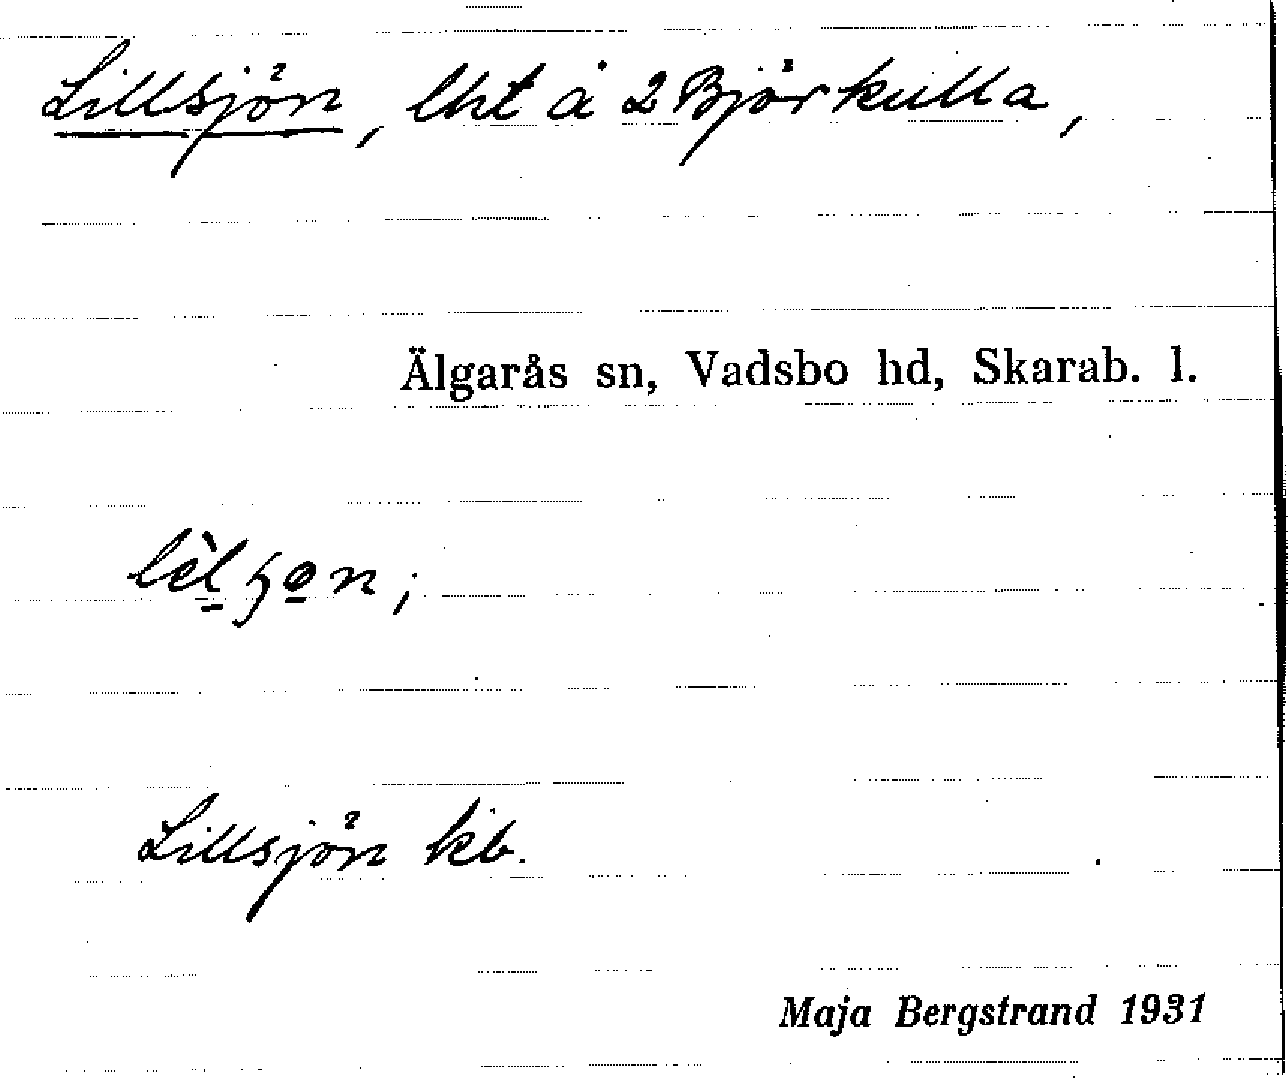 Lillsjön, lht å 2 Björkulla,
Älgarås sn, Vadsbo hd, Skarab. l.
Lillsjön kb.
Maja Bergstrand 1931